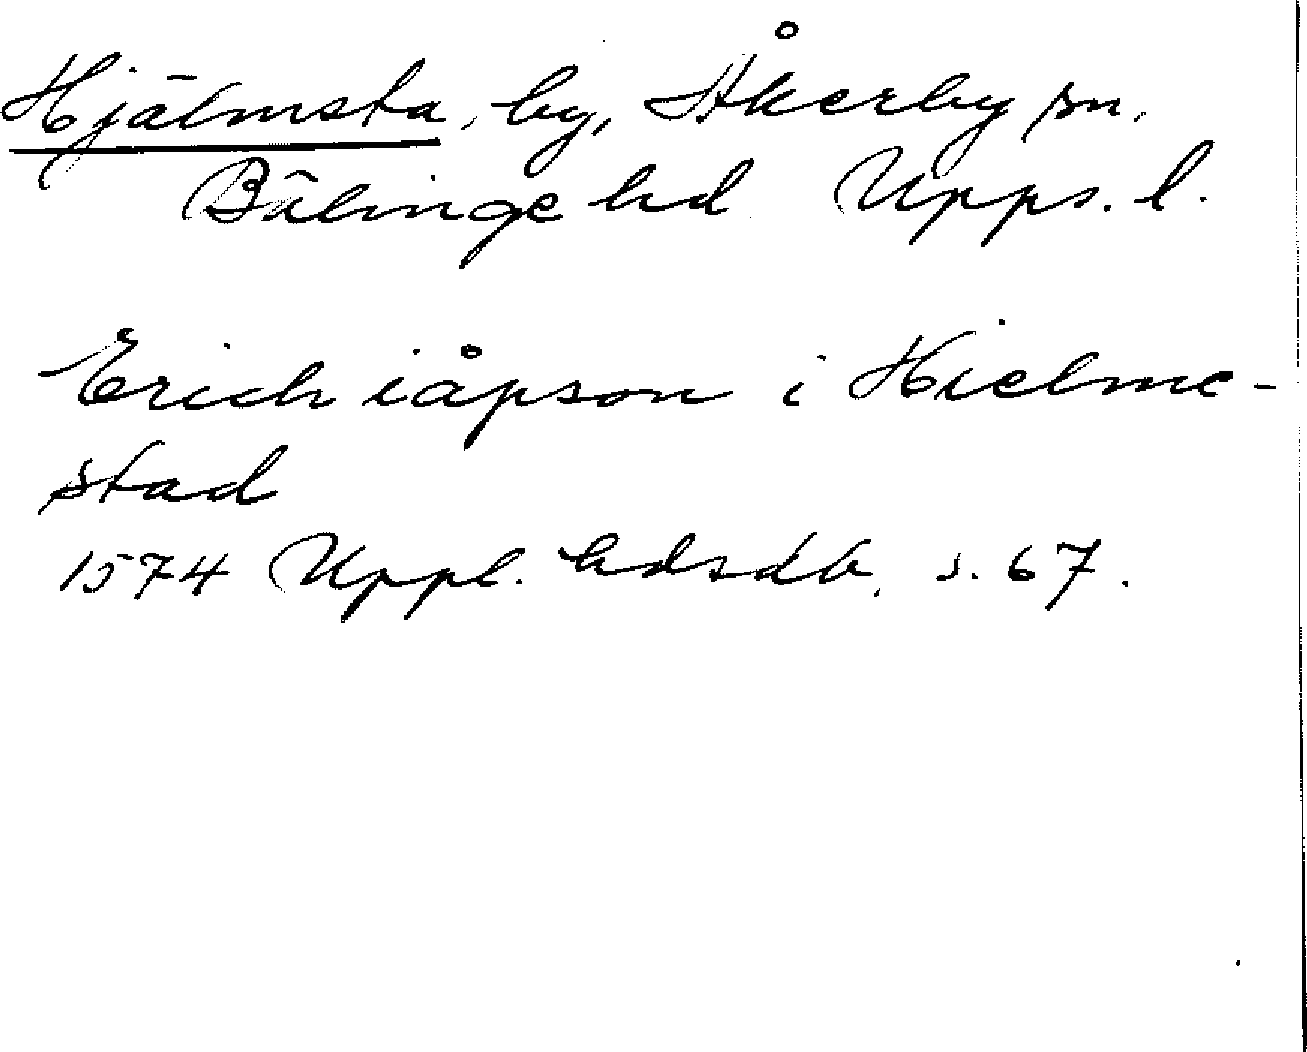 Hjälmsta, by, Åkerby sn.
Bälinge hd Upps. l.
Erich iåpson i Hielme-
stad
1574 Uppl. hdsdb. s. 67.